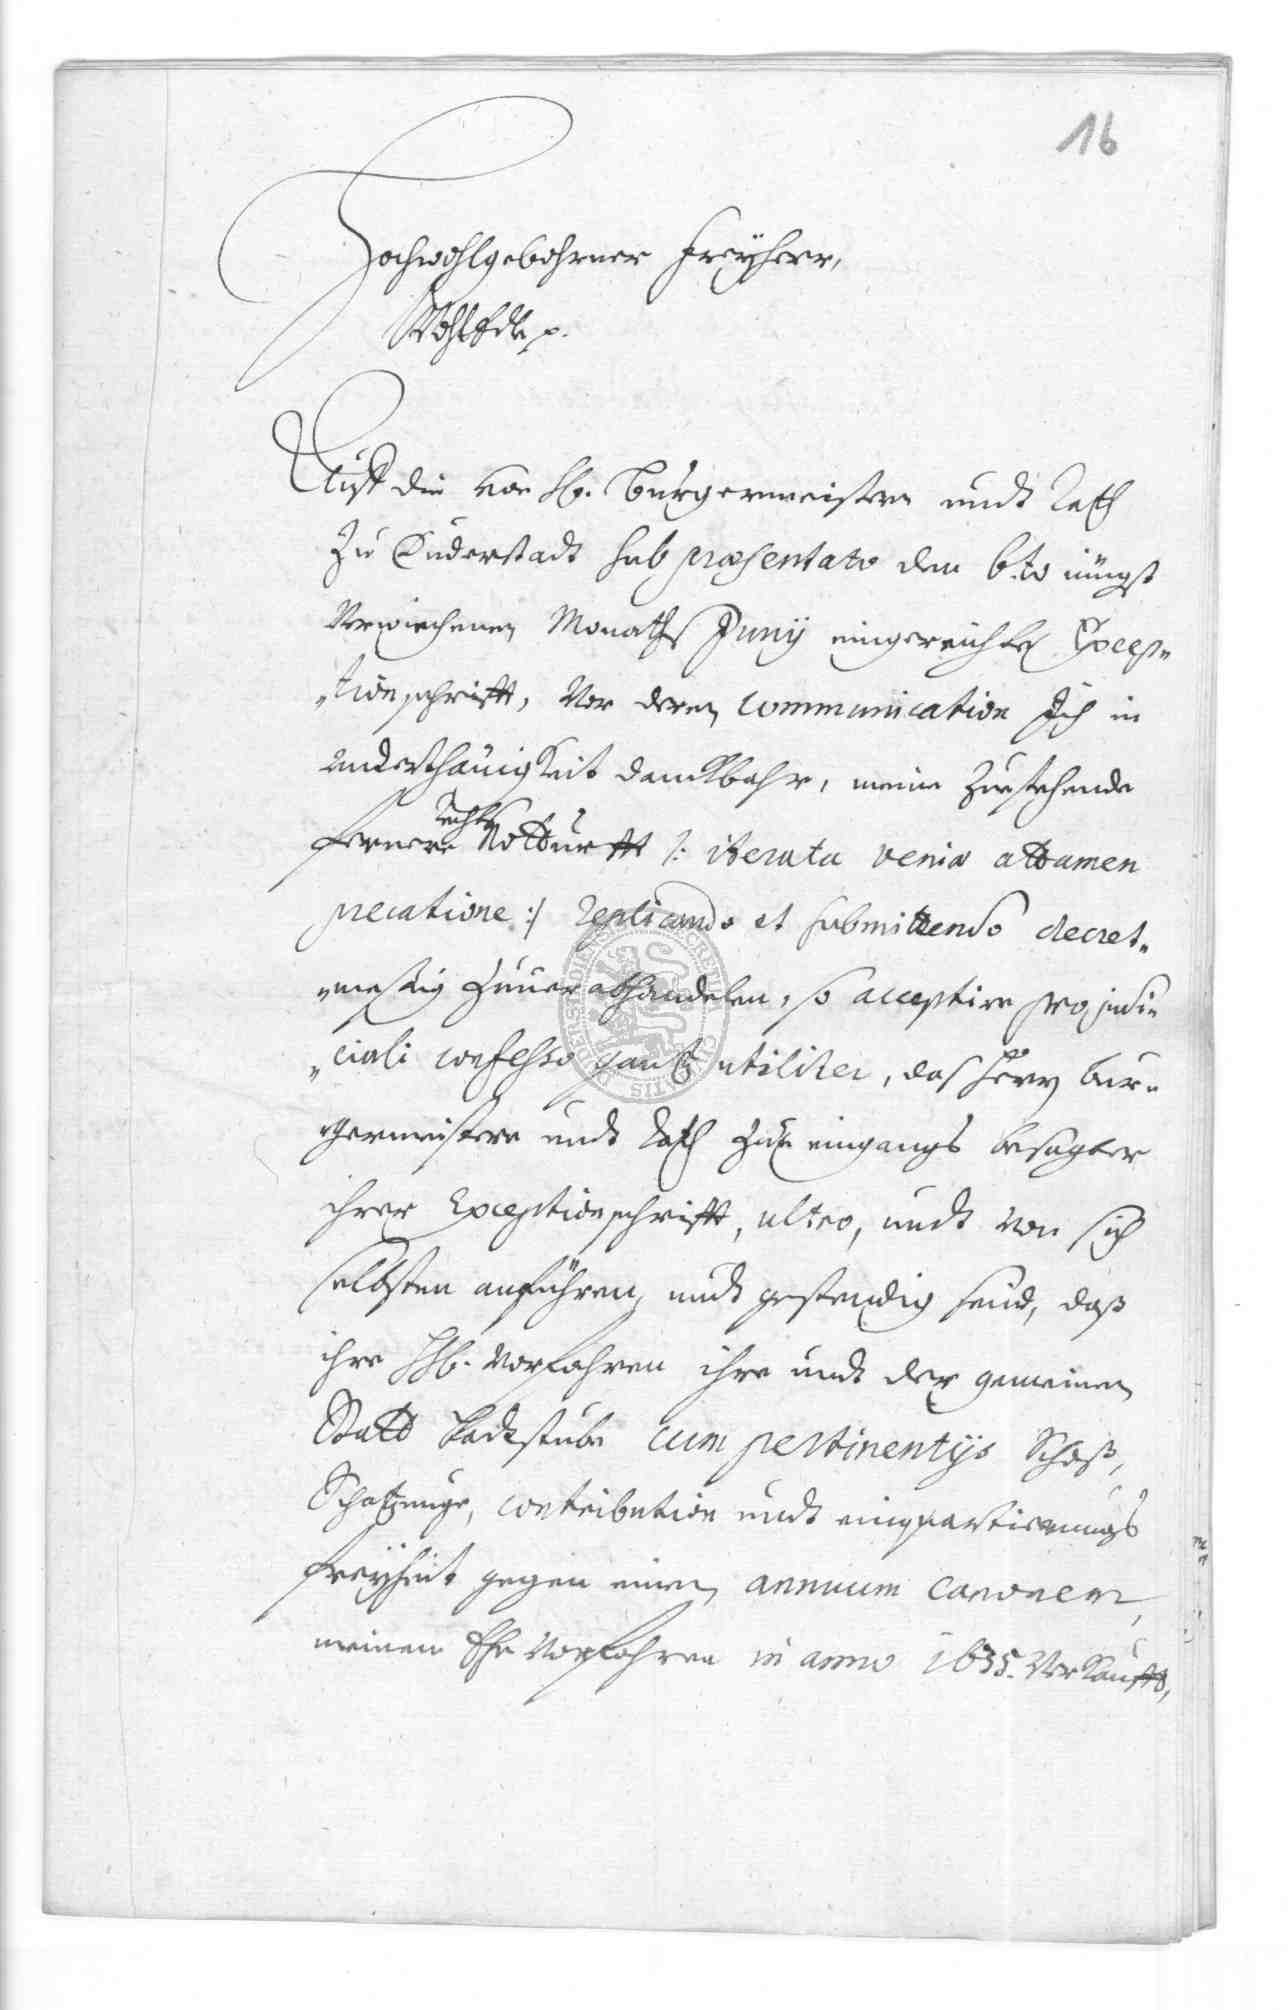 16
Hochwohlgebohrner Freyherr,
WohlEdle p.
Auff die von H. Burgermeistern undt Rath
zu Duderstadt sub præsentato den 6.to jüngst
verwichenen Monaths Junÿ eingereichte Excep„
„tionschrifft, vor deren communication Ich in
underthänigkeit danckbahr, meine zustehende
fernere rechts Notturfft /: iterata veniæ attamen
precatione :/ replicando et submittendo decret„
„meßig zuuerabhandelen, so acceptire pro judi„
„ciali confesso gantz utiliter, das Herrn Bur„
„germeistere undt Rath zu eingangs besagter
ihrer Exceptionschrifft, ultro, undt von sich
selbsten anführen, undt gestendig seind, daß
ihre HH. Vorfahren ihre undt der gemeinen
Statt Badtstube cum pertinentijs Schoß,
Schatzunge, contribution undt einquartierungs
freyheit gegen einen annuum canonem,
meinen Ehe Vorfahren in anno 1635. verkaufft,